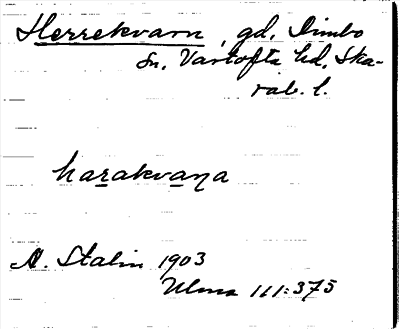 Herrekvarn, gd, Dimbo
sn, Vartofta hd, Ska-
rab. l.
harakvaṇa
A. Stalin 1903
Ulma 111:375